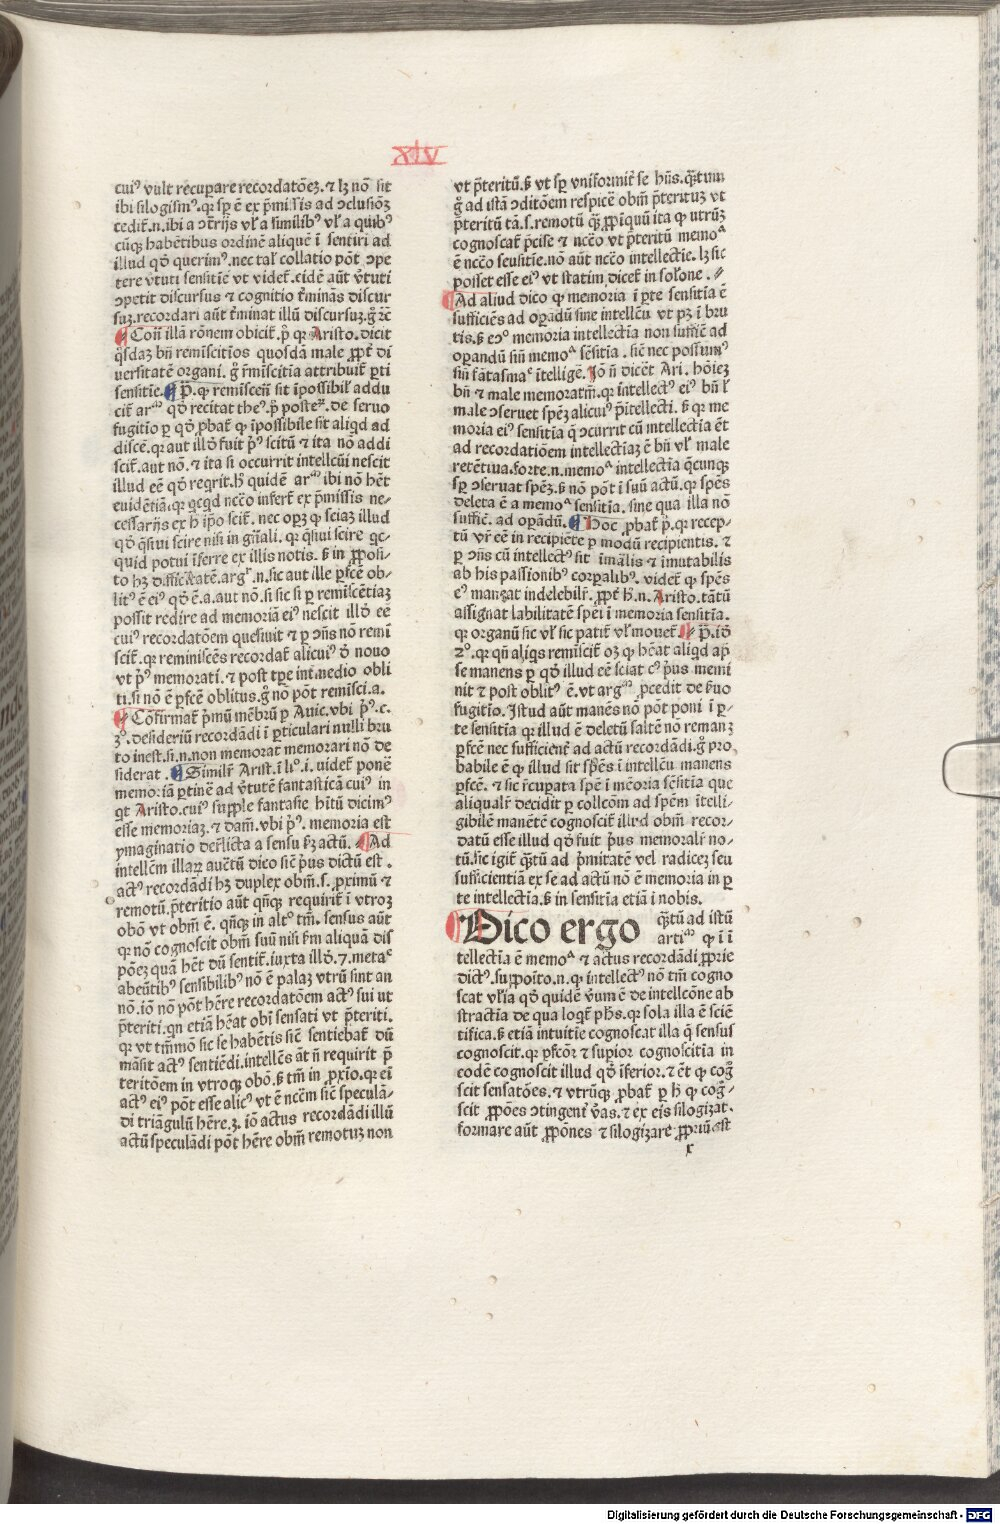 XLV
cuiꝰ vult recuꝑare recordatōeꝫ. ⁊ lꝫ nō sit
ibi silogismꝰ. qꝛ sꝑ ē ex p̄missis ad ↄclusiōꝫ
cedit̄. n. ibi a ↄtrijs vl̓ a similibꝰ vl̓ a quibꝰ
cūqꝫ habētibus ordinē aliquē ī sentiri ad
illud qḋ querimꝰ. nec tal̓ collatio pōt ↄpe
tere v̓tuti sensitiē vt videt̄. eidē aūt v̓tuti
ↄpetit discursus ⁊ cognitio t̄minās discur
suꝫ. recordari aūt t̄minat illū discursuꝫ. g̊ ⁊c̄
¶ Con̄ illā rōnem obicit̄. p̄ qꝛ Aristo. dicit
q̊sdaꝫ bn̄ remīscitiōs quosdā male ꝓpt̄ di
uersitatē organi. g̊ r̄miscitia attribuit̄ ꝑti
sensitiē. ¶ P̄. ꝙ remiscen̄ sit īpossibil̓ addu
cit̄ arᵐ qḋ recitat theꝰ. p̄ posteꝝ. de seruo
fugitio ꝑ qḋ ꝓbat̄ ꝙ īpossibile sit aliqd ad
discē. qꝛ aut illḋ fuit p̓ꝰ scitū ⁊ ita nō addi
scit̄. aut nō. ⁊ ita si occurrit intellcūi nescit
illud eē qḋ reqrit. hͦ quidē arᵐ ibi nō hēt
euidētiā. qꝛ qcqd ncēo infert̄ ex p̄missis ne-
cessarijs ex hͦ ip̄o scit̄. nec oꝑꝫ ꝙ sciaꝫ illud
qḋ q̄siui scire nisi in gn̄ali. qꝛ q̄siui scire qc-
quid potui īferre ex illis notis. ß in ꝓposi-
to hꝫ difficltatē. argr̄. n. sic aut ille ꝑfcē ob-
litꝰ ē eiꝰ qḋ ē. a. aut nō. si sic si ꝑ remiscētiaꝫ
possit redire ad memoriā eiꝰ nescit illḋ eē
cuiꝰ recordatōem quesiuit ⁊ ꝑ ↄn̄s nō remī
scit̄. qꝛ reminiscēs recordat̄ alicuiꝰ ḋ nouo
vt p̓ꝰ memorati. ⁊ post tp̄e int̓medio obli
ti. si nō ē ꝑfcē oblitus. g̊ nō pōt remīsci. a.
¶ Cōfirmat̄ p̓mū mēbrū ꝑ Auic. vbi p̓ꝰ. c.
3ͦ. desideriū recordādi ī ꝑticulari nulli bru
to inest. si. n. non memorat memorari nō de
siderat. ¶ Simil̓r Arist. ī liͦ. i. uidet̄ ponē
memoriā ꝑtinē ad v̓tutē fantasticā cuiꝰ in
qt Aristo. cuiꝰ supple fantasie h̄itū dicimꝰ
esse memoriaꝫ. ⁊ dam̄. vbi p̓ꝰ. memoria est
ymaginatio der̓licta a sensu ẜꝫ actū. ¶ Ad
intellcm̄ illaꝝ auctū dico sic̄ p̓us dictū est.
actꝰ recordādi hꝫ duplex obm̄. s. ꝓximū ⁊
remotū. p̄teritio aūt qn̄qꝫ requirit̄ ī vtroꝫ
obō vt obm̄ ē. qn̄qꝫ in altͦ tm̄. sensus aūt
qꝛ nō cognoscit obm̄ suū nisi ẜm aliquā dis
pōeꝫ quā hēt dū sentit̄. iuxta illḋ. 7. metaᵉ
abeūtibꝰ sensibilibꝰ nō ē palaꝫ vtrū sint an
nō. iō nō pōt hēre recordatōem actꝰ sui ut
p̄teriti. qn etiā hēat obī sensati vt p̄teriti.
qꝛ vt tm̄mō sic se habētis sic̄ sentiebat̄ dū
māsit actꝰ sentiēdi. intellēs āt n̄ requirit p̄
teritōem in vtroqꝫ obō. ß tm̄ in ꝓxīo. qꝛ eī
actꝰ eiꝰ pōt esse alicꝰ vt ē nccm̄ sic̄ speculā-
di triāgulū hēre. 3. iō actus recordādi illū
actū speculādi pōt hēre obm̄ remotuꝫ non
vt p̄teritū. ß vt sꝑ vniformit̓ se hn̄s. q̄tum
g̊ ad istā ↄditōem respicē obm̄ p̄terituꝫ vt
p̄teritū tā. s. remotū qꝫ ꝓpīquū ita ꝙ utrūꝫ
cognoscat̄ p̄cise ⁊ ncēo vt p̄teritū memoᵃ
ē ncēo sensitie. nō aūt ncēo intellectie. lꝫ sic
posset esse eiꝰ vt statim dicet̄ in sol̓one.
¶ Ad aliud dico ꝙ memoria ī ꝑte sensitīa ē
sufficiēs ad oꝑādū sine intellcū vt pꝫ ī bru
tis. ß eↄͦ memoria intellectīa non suffic̄ ad
oꝑandū sin̄ memoᵃ sēsitīa. sic̄ nec possumꝰ
sin̄ fātasmaᵉ ītelligē. Iō n̄ dicēt Ari. hōieꝫ
bn̄ ⁊ male memoratm̄. qꝛ intellectꝰ eiꝰ bn̄ l̓
male ↄseruet spēꝫ alicuiꝰ p̄itellecti. ß qꝛ me
moria eiꝰ sensitīa q̄ ↄcurrit cū intellectīa ēt
ad recordatiōem intellectiaꝫ ē bn̄ vl̓ male
retētiua. forte. n. memoᵃ intellectīa q̄cunqꝫ
sꝑ ↄseruat spēꝫ. ß nō pōt ī suū actū. qꝛ spēs
deleta ē a memoᵃ sensitīa. sine qua illa nō
suffic̄. ad oꝑādū. ¶ Hoc ꝓbat̄ p̓. qꝛ recep-
tū vr̄ eē in recipiēte ꝑ modū recipientis. ⁊
ꝑ ↄn̄s cū intellectꝰ sit īmālis ⁊ īmutabilis
ab his passionibꝰ corꝑalibꝰ. videt̄ ꝙ spēs
eꝰ maneat indelebil̓r. ꝓpt̄ hͦ. n. Aristo. tātū
assignat labilitatē spēi ī memoria sensitīa.
qꝛ organū sic vl̓ sic patit̄ vl̓ mouet̄. ¶ P̄. iō
2ͦ. qꝛ qn̄ aliqs remīscit̄ oꝫ ꝙ hēat aliqd apᵈ
se manens ꝑ qḋ illud eē sciat cꝰ p̓us memi
nit ⁊ post oblitꝰ ē. vt argᵐ ꝓcedit de ẜuo
fugitīo. Istud aūt manēs nō pōt poni ī ꝑ-
te sensitīa qꝛ illud ē deletū saltē nō remanꝫ
ꝑfcē nec sufficient̓ ad actū recordādi. g̊ pro
babile ē ꝙ illud sit spēs ī intellcū manens
ꝑfcē. ⁊ sic r̄cupata spē ī mēoria sēsitīa que
aliqual̓r decidit ꝑ collcōm ad spēm ītelli-
gibilē manētē cognoscit̄ illud obm̄ recor-
datū esse illud qḋ fuit p̓us memoral̓r no-
tū. sic igit̄ q̄tū ad p̓mitatē vel radiceꝫ seu
sufficientiā ex se ad actū nō ē memoria in ꝑ
te intellectīa. ß in sensitīa etiā ī nobis.
¶ Dico ergo q̄tū ad istū
artiᵐ ꝙ ī ī
tellectīa ē memoᵃ ⁊ actus recordādi ꝓprie
dictꝰ. suppoīto. n. ꝙ intellectꝰ nō tm̄ cogno
scat vl̓ia qḋ quidē v̓um ē de intellcōne ab
stractīa de qua loqt̄ ph̄s. qꝛ sola illa ē sciē
tifica. ß etiā intuitie cognoscat illa q̄ sensus
cognoscit. qꝛ ꝑfcōꝛ ⁊ suꝑior cognoscitīa in
eodē cognoscit illud qḋ īferior. ⁊ ēt ꝙ cog̊
scit sensatōes. ⁊ vtrūqꝫ ꝓbat̄ ꝑ hͦ ꝙ cog̊-
scit ꝓpōes ↄtingent̓ v̓as. ⁊ ex eis silogizat.
formare aūt ꝓpōnes ⁊ silogizare ꝓpriū est
r
Digitalisierung gefördert durch die Deutsche Forschungsgemeinschaft - DFG